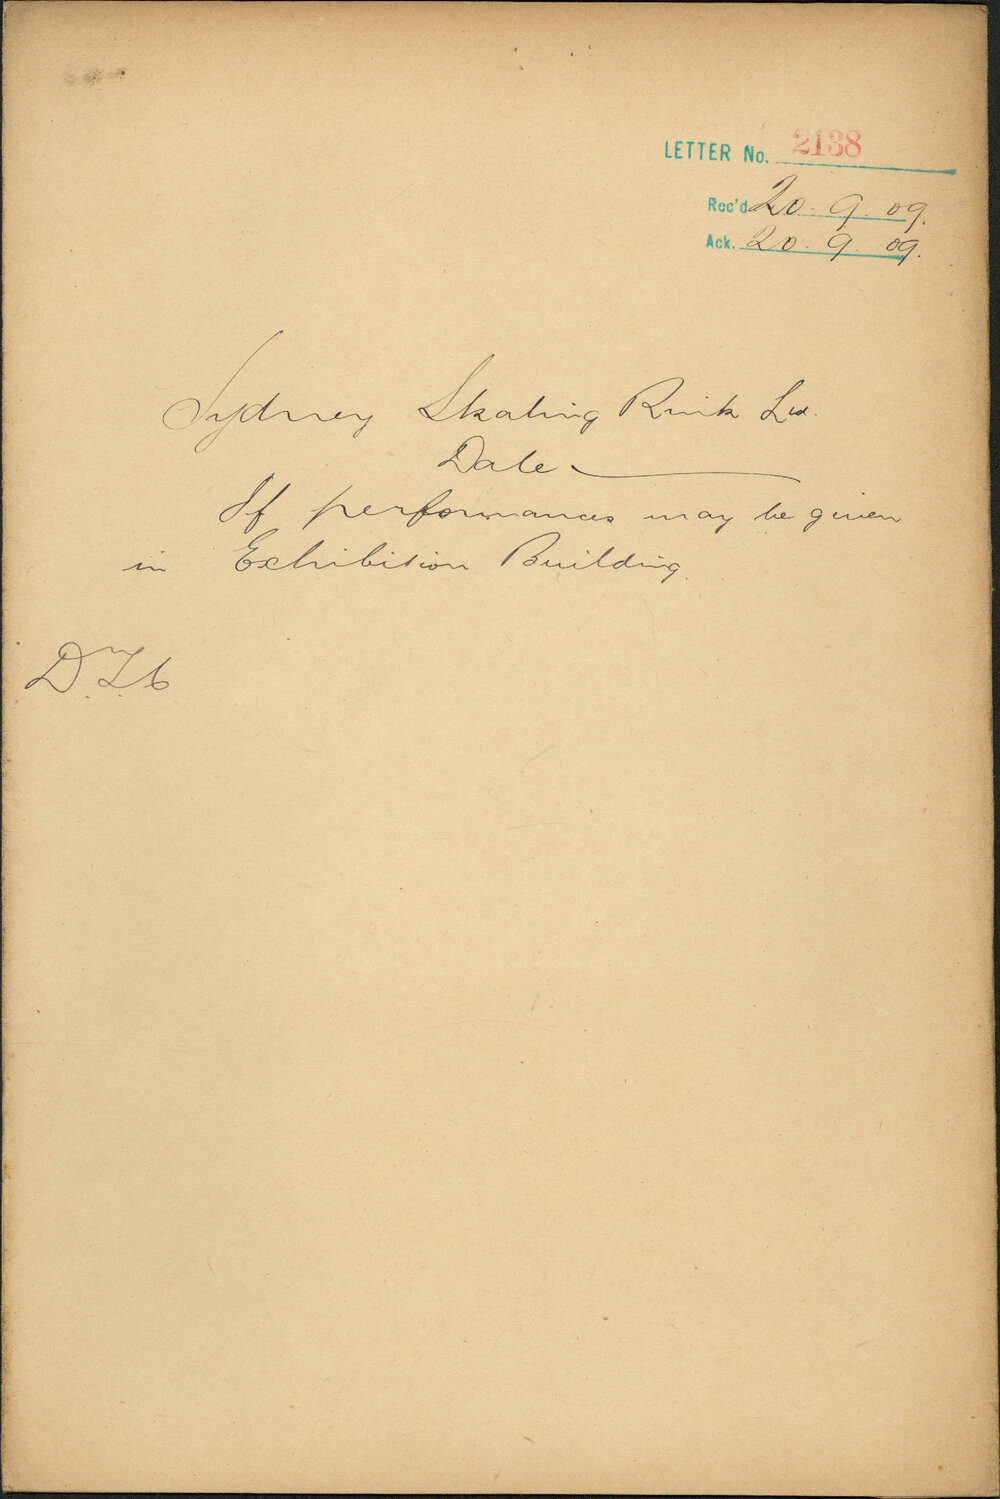 LETTER No. 2138
Rec'd 20.9.09.
Ack. 20.9.09.
Sydney Skating Rink Ld.
Date
If performances may be given
in Exhibition Building.